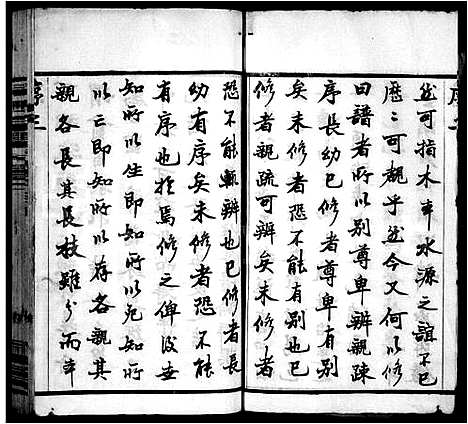 然可指木本水源之誼不已
歷歷可覩乎然今又何以修
曰譜者所以别尊卑辨親疎
序長幼已修者尊卑有别
矣未修者恐不能有别也已
修者親疏可辨矣未修者
恐不能輒辨也已修者長
幼有序矣未修者恐不能
有序也於焉修之俾後世
知所以生即知所以危知所
以亡即知所以存各親其
親各長其長枝雖分而本
序